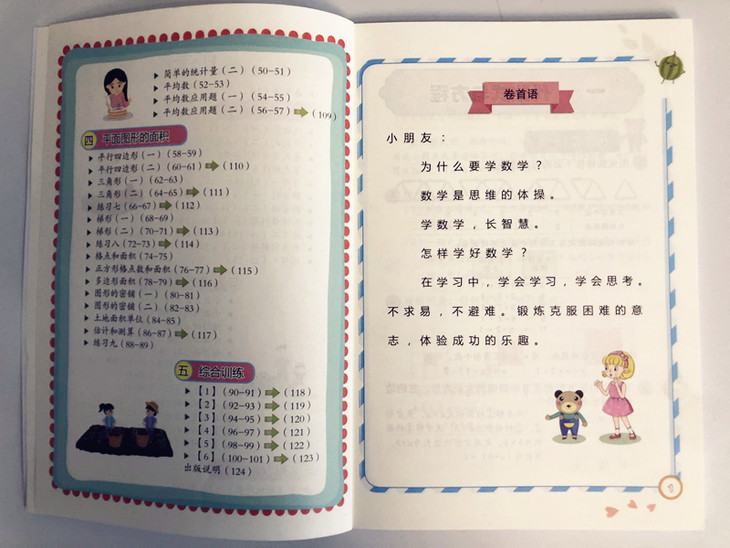 简单的统计量（二）（50-51）
平均数（52-53）
平均数应用题（一）（54-55）
平均数应用题（二）（56-57）（109）
四 平面图形的面积
平行四边形（一）（58-59）
平行四边形（二）（60-61）（110）
三角形（一）（62-63）
三角形（二）（64-65）（111）
练习七（66-67）（112）
梯形（一）（68-69）
梯形（二）（70-71）（113）
练习八（72-73）（114）
格点和面积（74-75）
正方形格点数和面积（76-77）（115）
多边形面积（78-79）（116）
图形的密铺（一）（80-81）
图形的密铺（二）（82-83）
土地面积单位（84-85）
估计和测算（86-87）（117）
练习九（88-89）
五 综合训练
【1】（90-91）（118）
【2】（92-93）（119）
【3】（94-95）（120）
【4】（96-97）（121）
【5】（98-99）（122）
【6】（100-101）（123）
出版说明（124）
卷首语
小朋友：
为什么要学数学？
数学是思维的体操。
学数学，长智慧。
怎样学好数学？
在学习中，学会学习，学会思考。
不求易，不避难。锻炼克服困难的意
志，体验成功的乐趣。
1